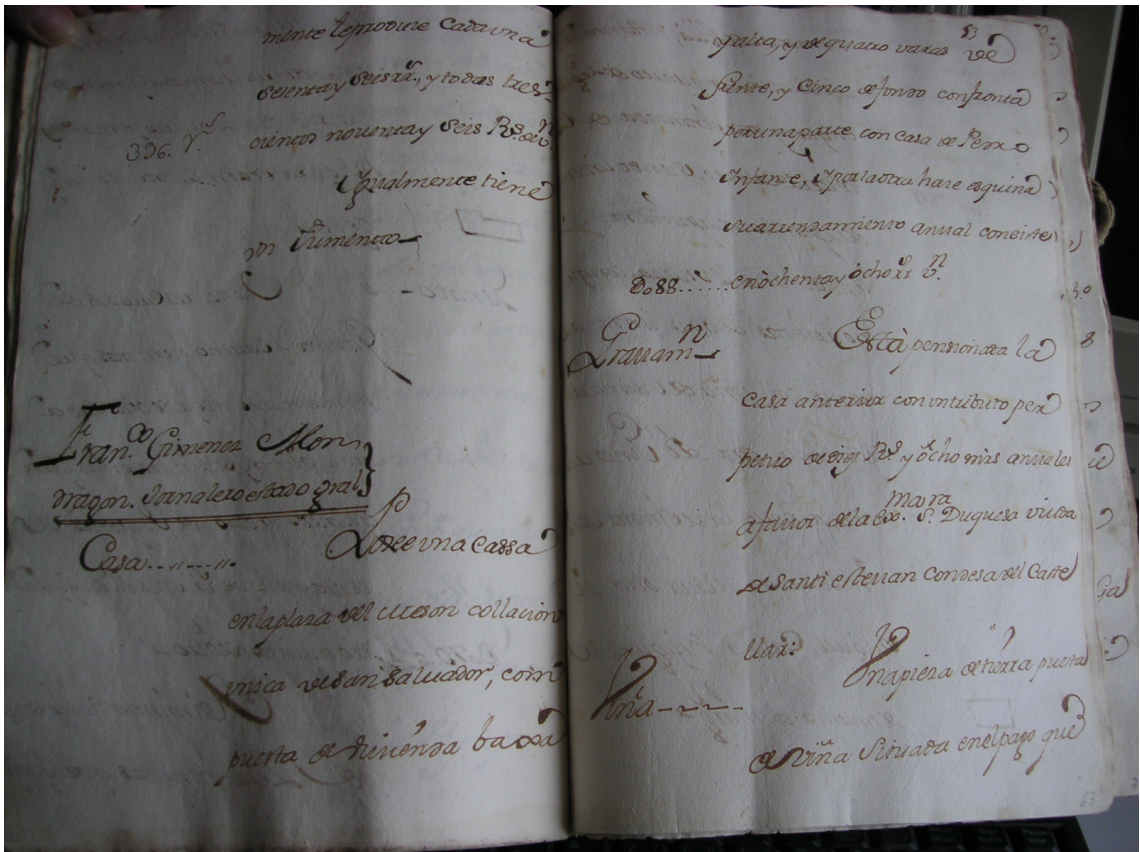 mente le produce cada una
sesenta y seis rr.s, y todas tres-
396. r.s cientos noventa y seis R.s de v.n
Ygualmente tiene
un Jumento
Fran.co Gimenez Mon
dragon. Jornalero estado gral
Casa Posee una cassa
en la plaza del meson collacion
unica de san salvador, com
puesta de vivienda baxa
53
y alta, y de quatro varas de
frente, y cinco de fondo confronta
por una parte con casa de Pero
Infante, y por la otra hace esquina
su arrendamiento anual consiste
D.o88...... en òchenta y òcho rr.s v.n
Gravam.n Està pensionada la
casa anterior con un tributo per
petuo de diez R.s y òcho mrs anuales
a favor de la Ex.ma S.ra Duquesa viuda
de Santi estevan Condesa del Caste
llar:
Viña Una pieza de tierra puesta
de viña situada en el pago que
63